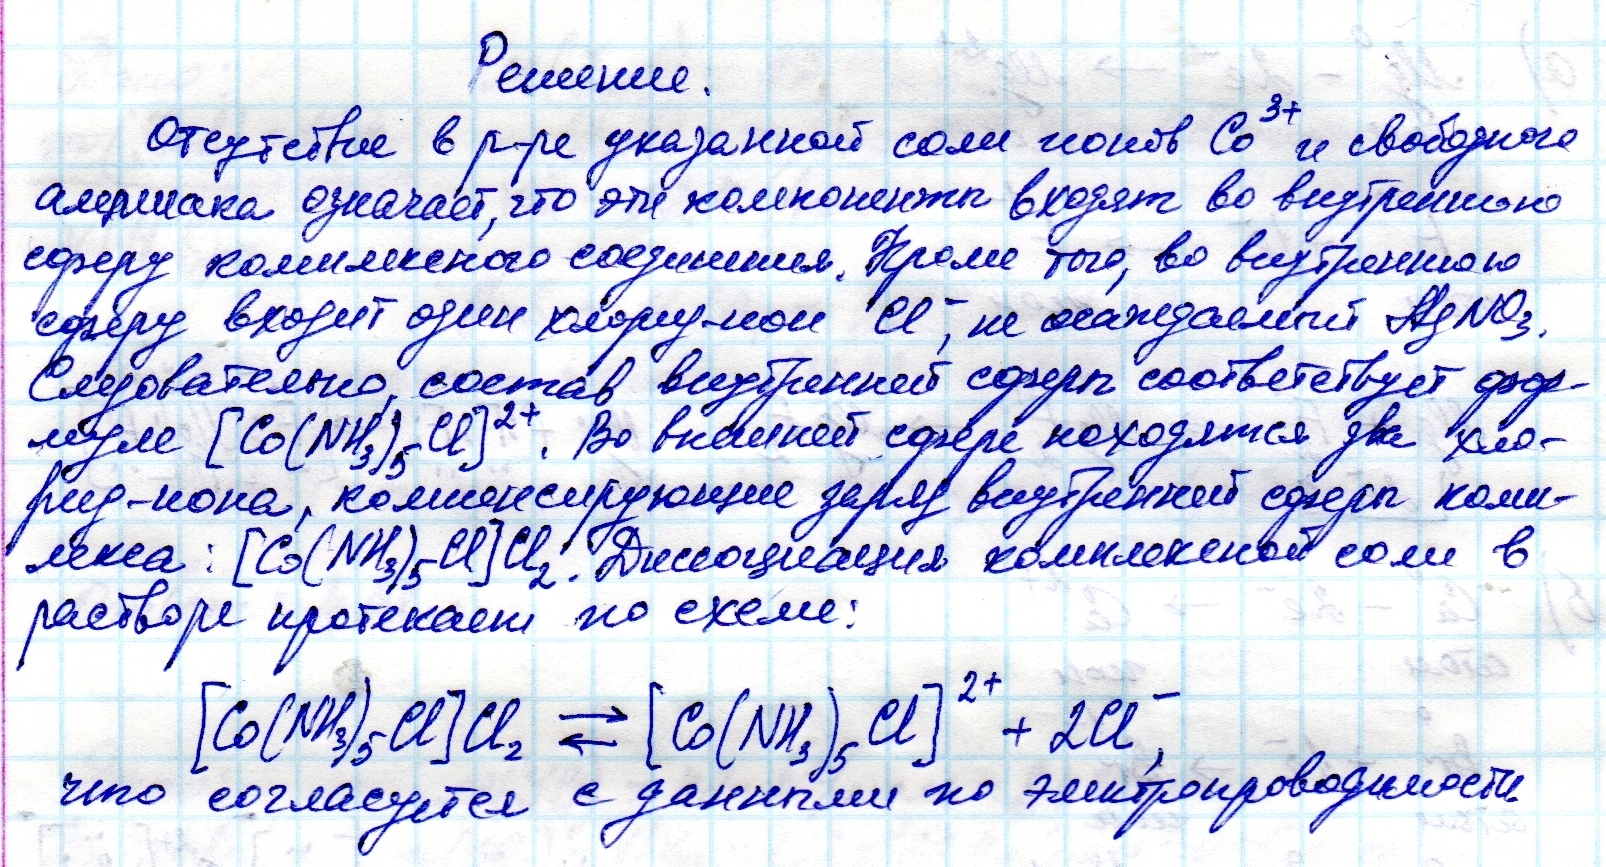 Решение.
Отсутствие в р-ре указанной соли ионов Co³⁺ и свободного
аммиака означает, что эти компоненты входят во внутреннюю
сферу комплексного соединения. Кроме того, во внутреннюю
сферу входит один хлорид-ион Cl⁻, не осаждаемый AgNO₃.
Следовательно, состав внутренней сферы соответствует фор-
муле [Co(NH₃)₅Cl]²⁺. Во внешней сфере находятся два хло-
рид-иона, компенсирующие заряд внутренней сферы комп-
лекса: [Co(NH₃)₅Cl]Cl₂. Диссоциация комплексной соли в
растворе протекает по схеме:
[Co(NH₃)₅Cl]Cl₂ ⇄ [Co(NH₃)₅Cl]²⁺ + 2Cl⁻,
что согласуется с данными по электропроводимости.